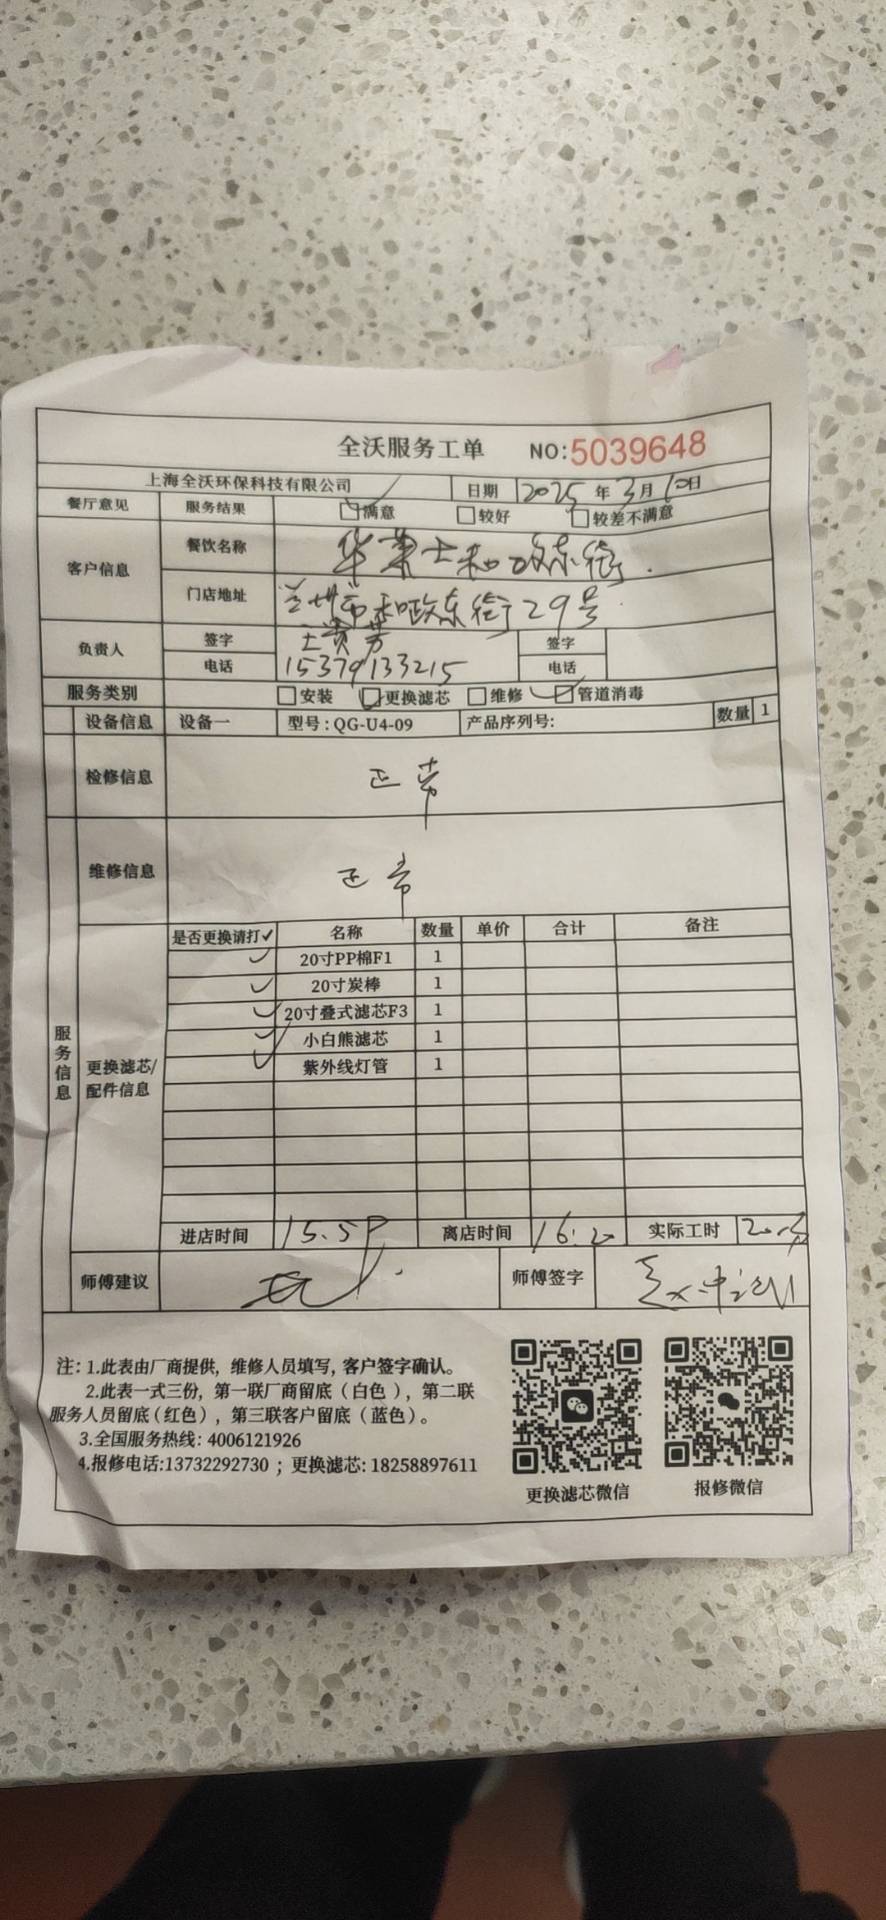 全沃服务工单 NO:5039648
上海全沃环保科技有限公司 日期 2025年3月10日
餐厅意见 服务结果 满意 较好 较差不满意
客户信息 餐饮名称 华莱士和政东街
门店地址 兰州市和政东街29号
负责人 签字 王贵芳 签字
电话 15379133215 电话
服务类别 安装 更换滤芯 维修 管道消毒
设备信息 设备一 型号:QG-U4-09 产品序列号: 数量 1
检修信息 正常
维修信息 正常
服务信息
更换滤芯/配件信息
是否更换请打✓ 名称 数量 单价 合计 备注
✓ 20寸PP棉F1 1
✓ 20寸炭棒 1
✓ 20寸叠式滤芯F3 1
✓ 小白熊滤芯 1
✓ 紫外线灯管 1
进店时间 15.59 离店时间 16:20 实际工时
师傅建议 师傅签字
注:1.此表由厂商提供，维修人员填写，客户签字确认。
2.此表一式三份，第一联厂商留底（白色），第二联
服务人员留底（红色），第三联客户留底（蓝色）。
3.全国服务热线: 4006121926
4.报修电话:13732292730；更换滤芯: 18258897611
更换滤芯微信 报修微信